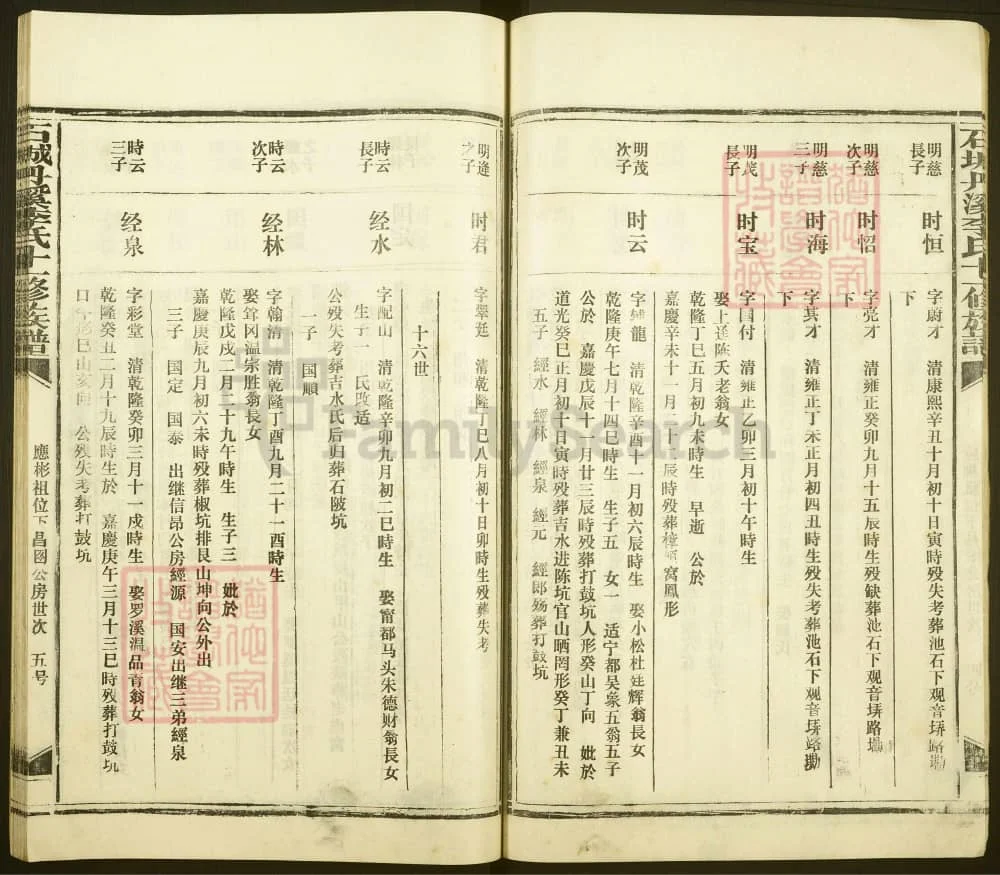 石城丹溪李氏十一修族譜
明慈長子 时恒 字蔚才 清康熙辛丑十月初十日寅時殁失考葬池石下观音塝路
下
明慈次子 时怊 字亮才 清雍正癸卯九月十五辰時生殁缺葬池石下观音塝路塝
下
明慈三子 时海 字其才 清雍正丁未正月初四丑時生殁失考葬池石下观音塝路
下
明茂長子 时宝 字国付 清雍正乙卯三月初十午時生
娶上 陈天老翁女
乾隆丁巳五月初九未時生 早逝 公於
嘉慶辛未十一月二十二辰時殁葬樟 窝鳳形
明茂次子 时云 字 龍 清乾隆辛酉十一月初六辰時生 娶小松杜廷辉翁長女
乾隆庚午七月十四巳時生 生子五 女一 适宁都吴象五翁五子
公於 嘉慶戊辰十一月廿三辰時殁葬打鼓坑人形癸山丁向 妣於
道光癸巳正月初十日寅時殁葬吉水进陈坑官山晒罔形癸丁兼丑未
五子 經水 經林 經泉 經元 經郎殇葬打鼓坑
明逢之子 时君 字翠廷 清乾隆丁巳八月初十日卯時生殁葬失考
十六世
時云長子 经水 字配山 清乾隆辛卯九月初二巳時生 娶甯都马头朱德财翁長女
生子一 氏改适
公殁失考葬吉水氏后归葬石陂坑
一子 国順
時云次子 经林 字翰清 清乾隆丁酉九月二十一酉時生
娶 冈温宗胜翁長女
乾隆戊戌二月二十九午時生 生子三 妣於
嘉慶庚辰九月初六未時殁葬椒坑排艮山坤向公外出
三子 国定 国泰 出继信昂公房經源 国安出继三弟經泉
時云三子 经泉 字彩堂 清乾隆癸卯三月十一戌時生 娶罗溪温品青翁女
乾隆癸丑二月十九辰時生於 嘉慶庚午三月十三巳時殁葬打鼓坑
巳山亥向 公殁失考葬打鼓坑
石城丹溪李氏十一修族譜
應彬祖位下昌图公房世次 五号
FamilySearch